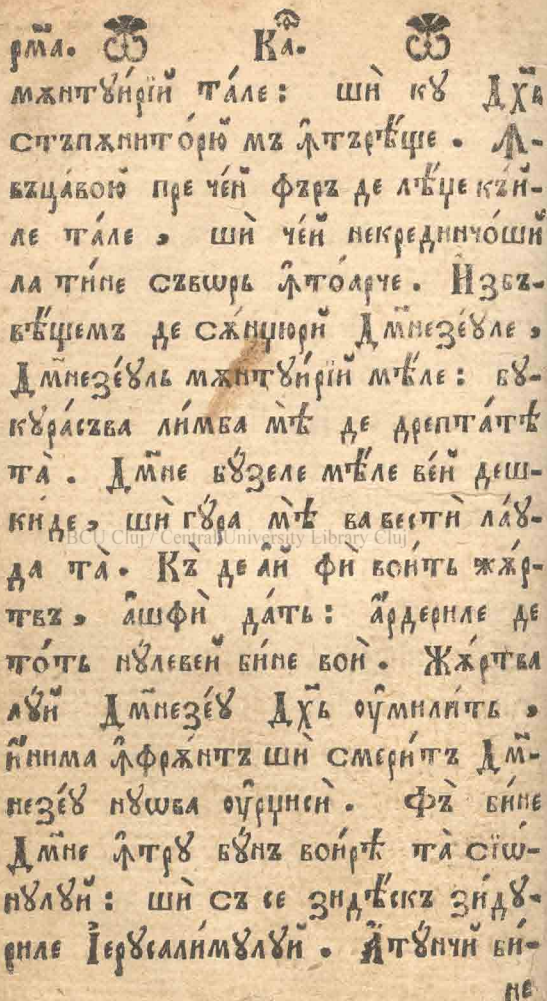 рм҃а. Ка҃.
мѫнтуи́рїй та́ле: шѝ ку Дх҃ъ
стъпѫнито́рю̆ мъ ꙟ҆търѣ́ще. Ꙟ-
въца́вою̆ пре че́й фъръ де лѣ́џе къ́й-
ле та́ле, шѝ че́й некрединчо́шй
ла ти́не съворь ꙟ҆тоа́рче. И҆збъ-
вѣ́щемъ де сѫ́нџюрй Дм҃незе́уле,
Дм҃незе́уль мѫнтуи́рїй мѣ́ле: бу-
кура́съва ли́мба мѣ̀ де дрепта́тѣ
та̀. Дм҃не бу́зеле мѣ́ле ве́й деш-
ки́де, шѝ гу́ра мѣ̀ ва вестѝ ла́у-
да та̀. Къ̀ де а҆́й фѝ вои́ть жѫ́р-
твъ, а҆шфѝ да́ть: а҆́рдериле де
то́ть ну́левей би́не воѝ. Жѫ́ртва
лу́й Дм҃незе́у Дх҃ь ѹ҆мили́ть,
и҆́нима ꙟ҆фрѫ́нтъ шѝ смери́тъ Дм҃-
незе́у нуѡва ѹ҆рџисѝ. Фъ̀ би́не
Дм҃не ꙟ҆тру бу́нъ вои́рѣ та̀ сїѡ́-
нулуй: шѝ съ се зидѣ́скъ зи́ду-
риле І҆ерусали́мулуй. А҆ту́нчй би́-
не
BCU Cluj / Central University Library Cluj